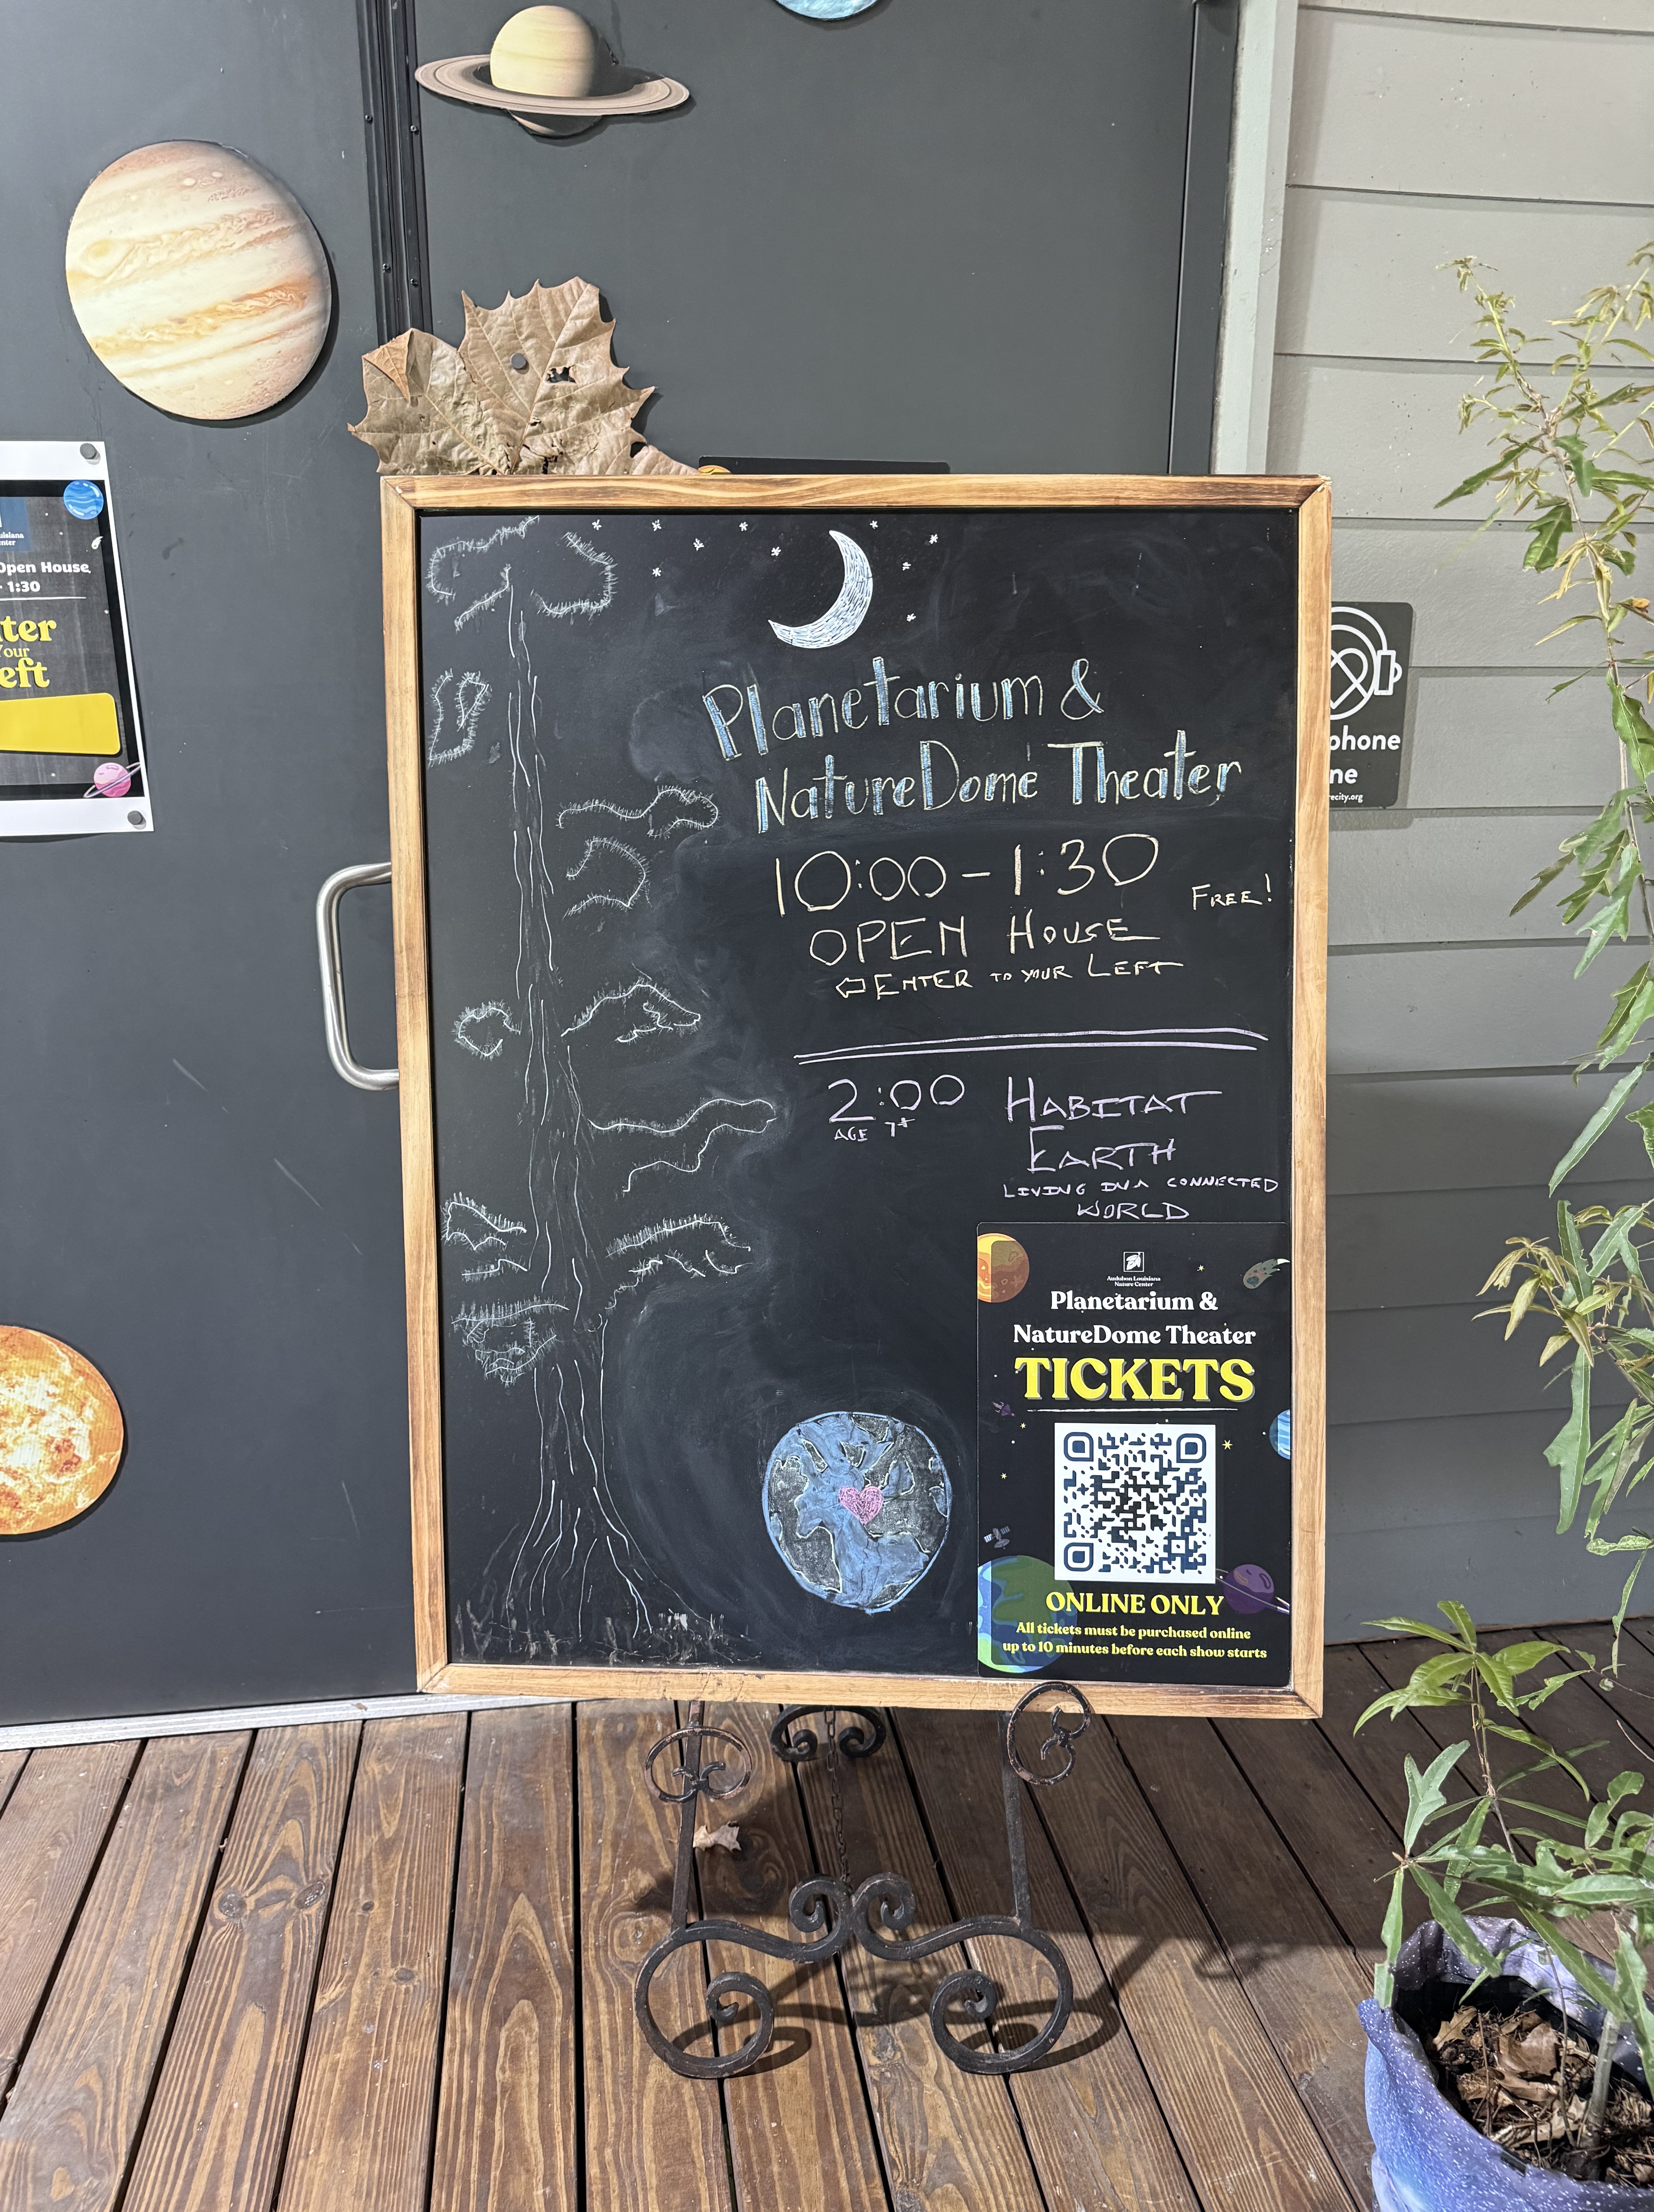 uisiana
enter
Open House
- 1:30
ter
Your
eft
Planetarium &
NatureDome Theater
10:00 - 1:30
FREE!
OPEN HOUSE
ENTER TO YOUR LEFT
2:00 HABITAT
AGE 7+
EARTH
LIVING IN A CONNECTED
WORLD
Audubon Louisiana
Nature Center
Planetarium &
NatureDome Theater
TICKETS
ONLINE ONLY
All tickets must be purchased online
up to 10 minutes before each show starts
phone
ne
recity.org